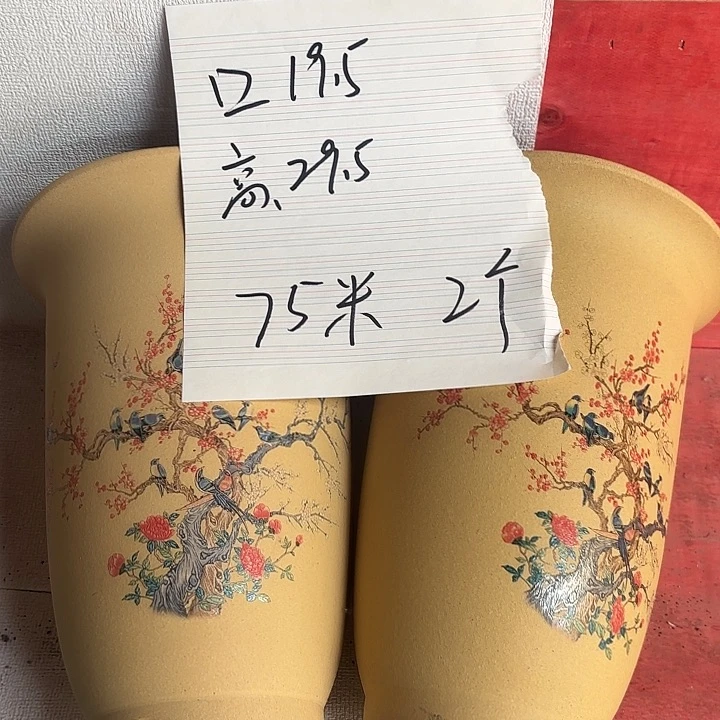 口19.5
高、29.5
75米 2个